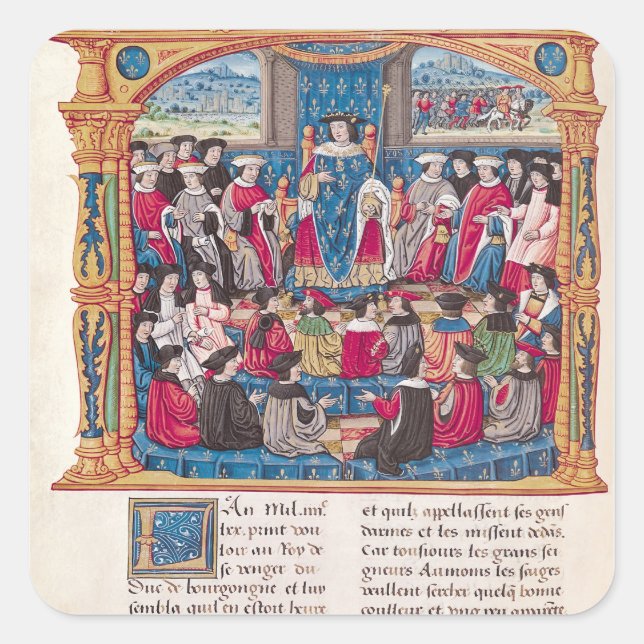 LAn Mil.iiiiᶜ
lxx, print vou
loir au Roy de
se venger du
Duc de bourgongne et luy
sembla quil en estoit heure
et quilz appellassent ses gens
darmes et les missent dedãs.
Car tousiours les grans sei
gneurs Aumoins les saiges
veullent sercher quelq̃ bonne
couleur et vng peu apparẽte